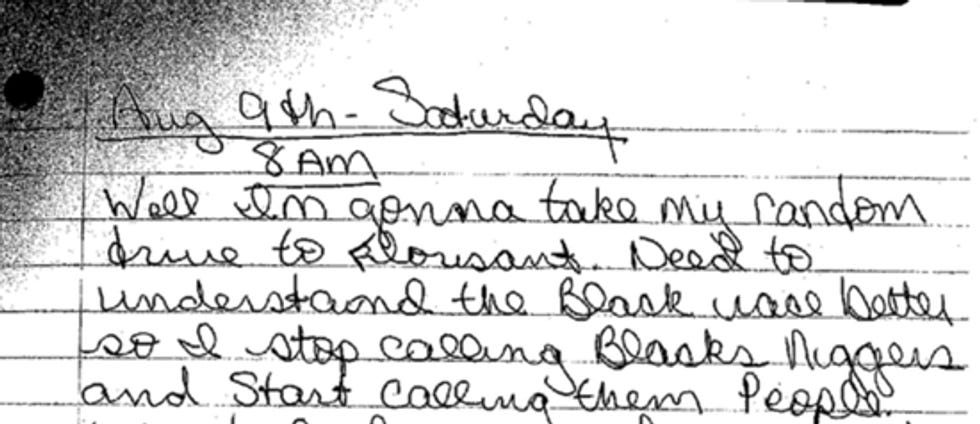 Aug 9th - Saturday
8 AM
Well Im gonna take my random
drive to Florisant. Need to
understand the Black race better
so I stop calling Blacks Niggers
and Start calling them People.